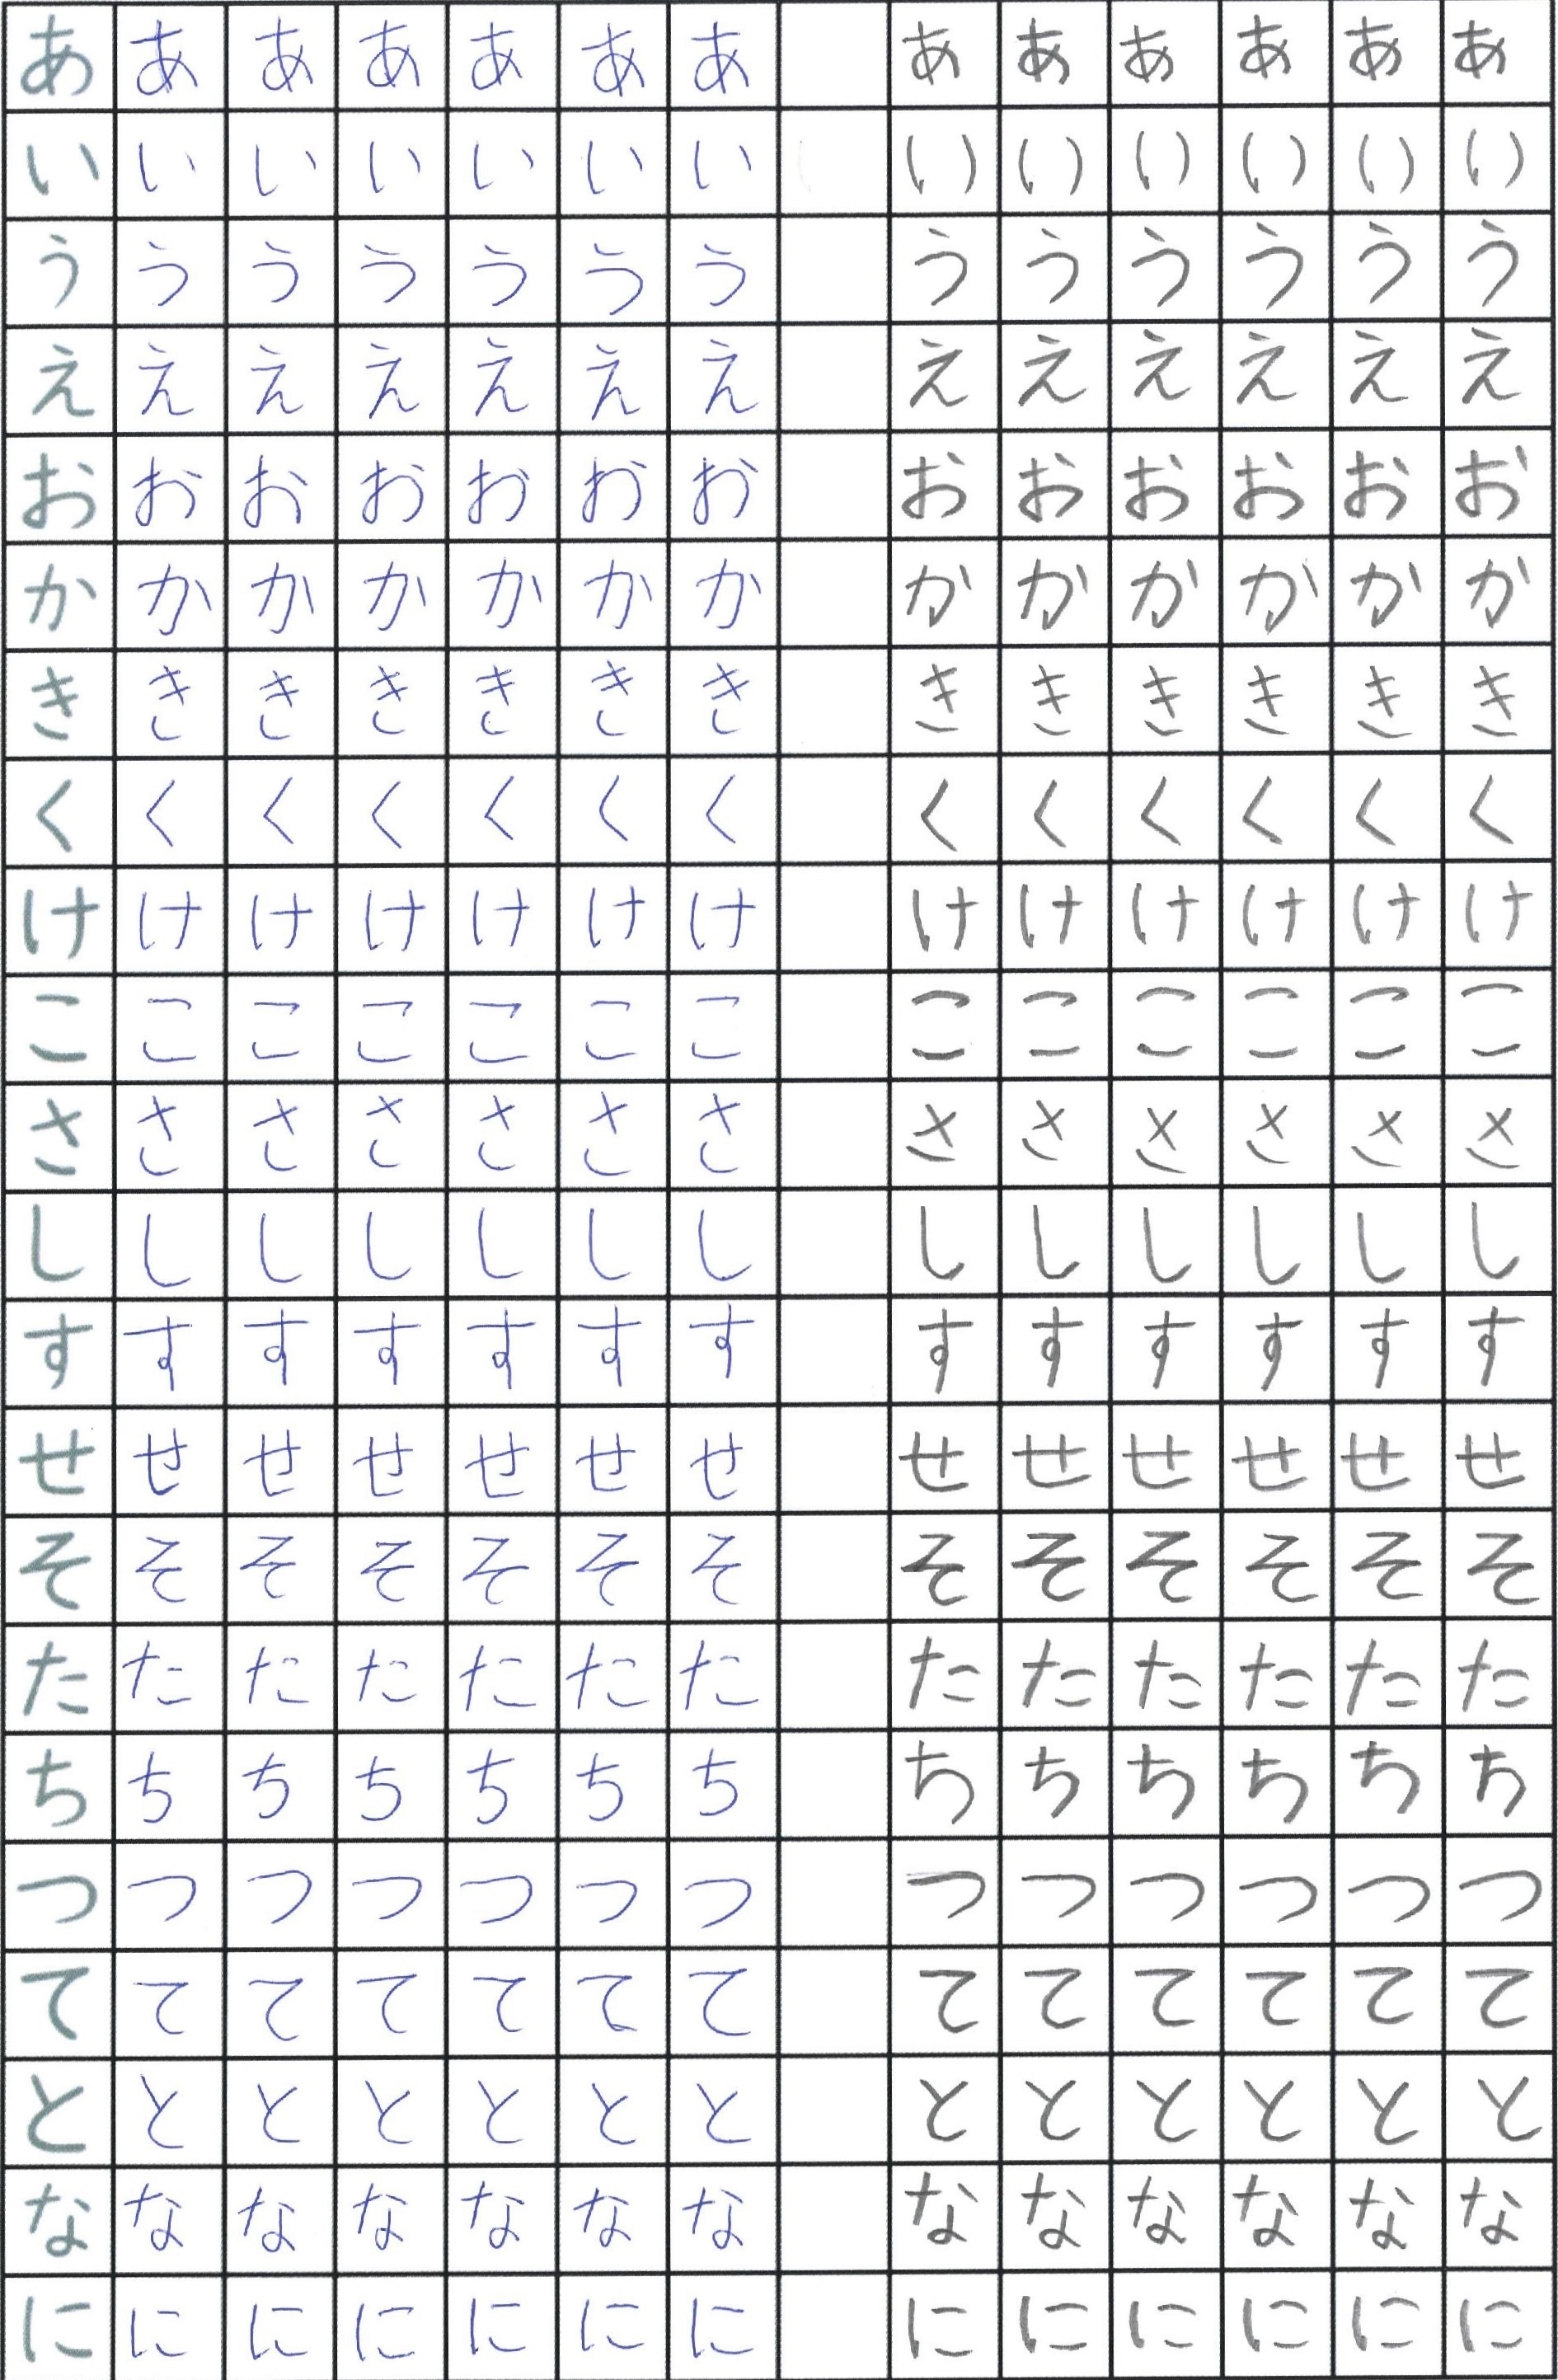 あ あ あ あ あ あ あ あ あ あ あ あ あ
い い い い い い い い い い い い い
う う う う う う う う う う う う う
え え え え え え え え え え え え え
お お お お お お お お お お お お お
か か か か か か か か か か か か か
き き き き き き き き き き き き き
く く く く く く く く く く く く く
け け け け け け け け け け け け け
こ こ こ こ こ こ こ こ こ こ こ こ こ
さ さ さ さ さ さ さ さ さ さ さ さ さ
し し し し し し し し し し し し し
す す す す す す す す す す す す す
せ せ せ せ せ せ せ せ せ せ せ せ せ
そ そ そ そ そ そ そ そ そ そ そ そ そ
た た た た た た た た た た た た た
ち ち ち ち ち ち ち ち ち ち ち ち ち
つ つ つ つ つ つ つ つ つ つ つ つ つ
て て て て て て て て て て て て て
と と と と と と と と と と と と と
な な な な な な な な な な な な な
に に に に に に に に に に に に に